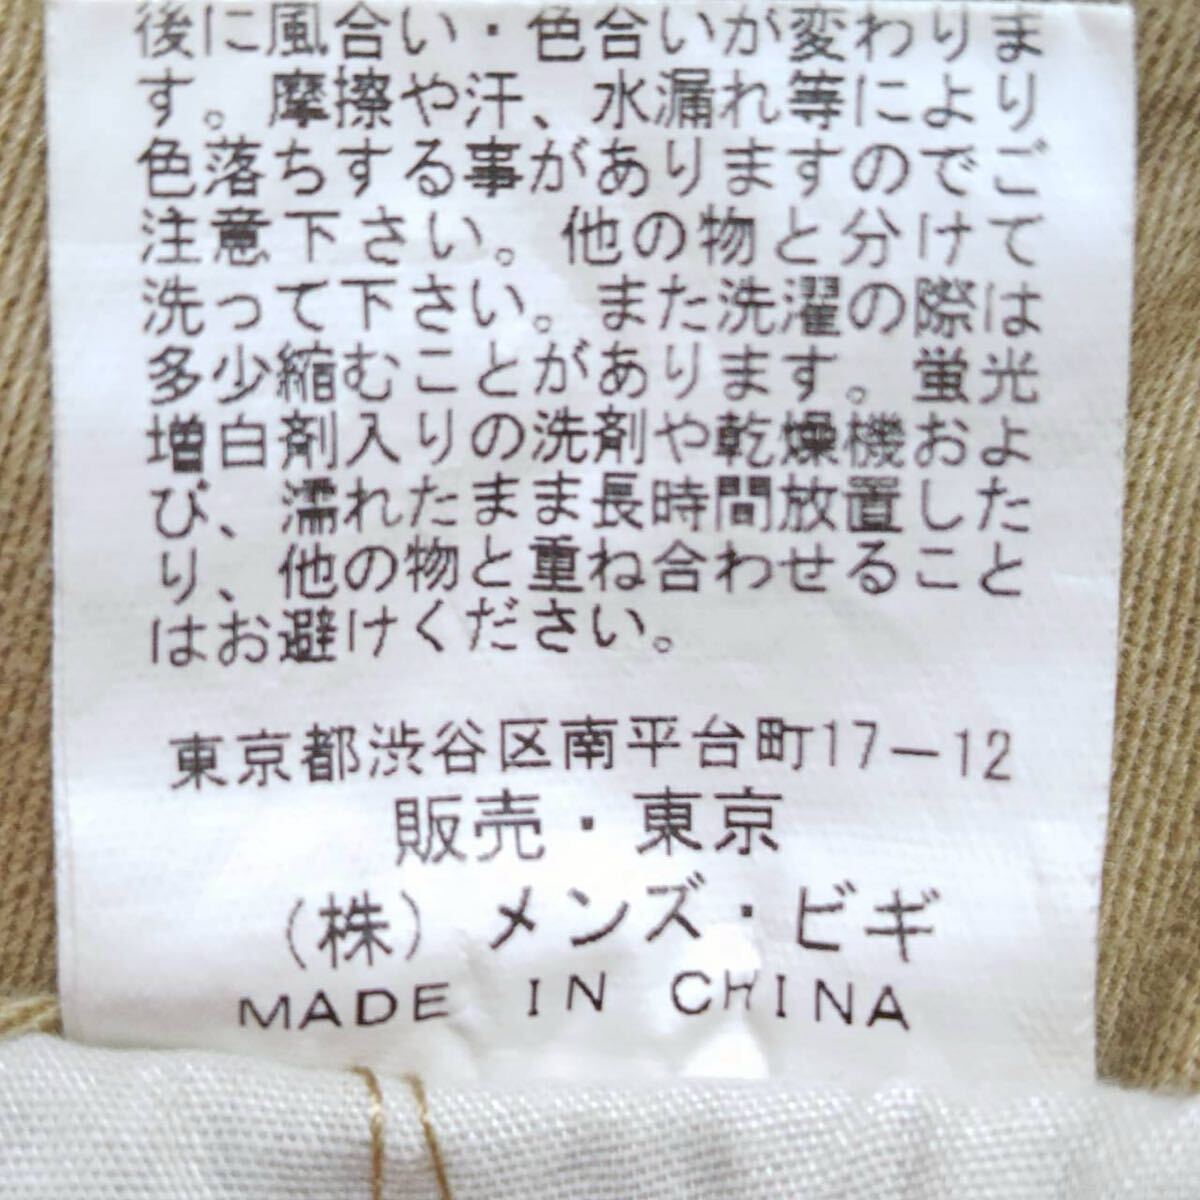 後に風合い・色合いが変わりま
す。摩擦や汗、水漏れ等により
色落ちする事がありますのでご
注意下さい。他の物と分けて
洗って下さい。また洗濯の際は
多少縮むことがあります。蛍光
増白剤入りの洗剤や乾燥機およ
び、濡れたまま長時間放置した
り、他の物と重ね合わせること
はお避けください。
東京都渋谷区南平台町17-12
販売・東京
(株)メンズ・ビギ
MADE IN CHINA